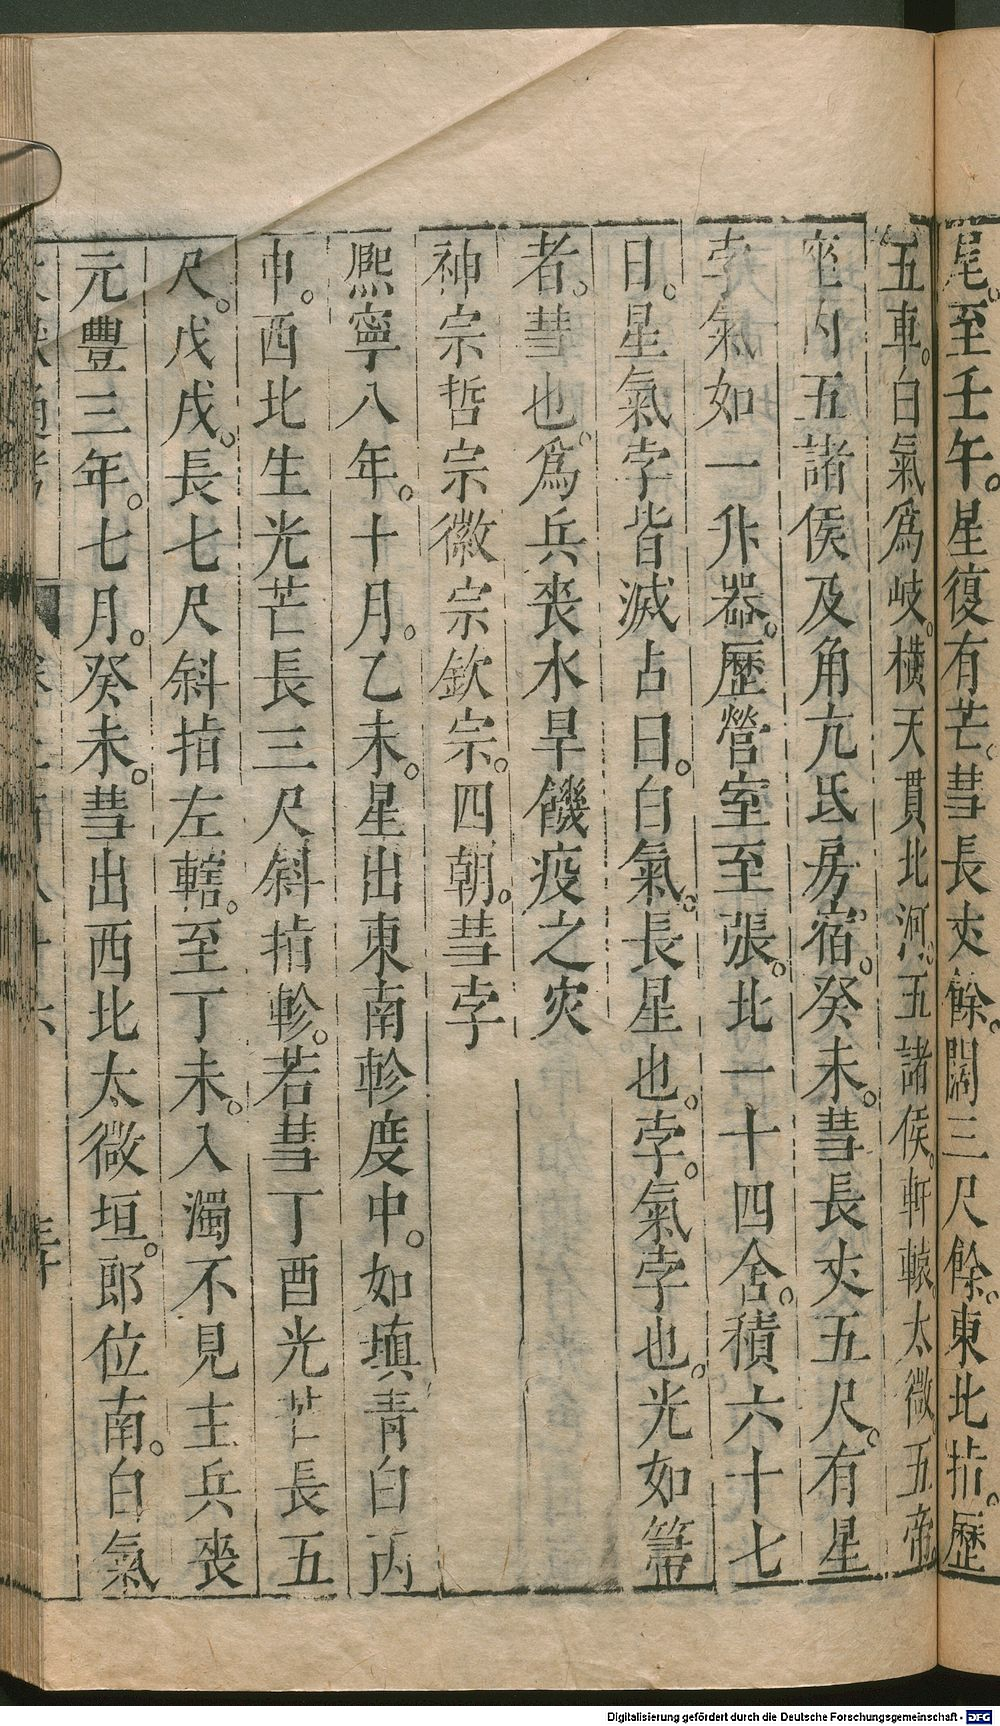 尾。至壬午。星復有芒。彗長丈餘。闊三尺餘。東北指。歷
五車。白氣爲岐。橫天貫北河。五諸侯。軒轅太微五帝
座内五諸侯及角亢氐房宿。癸未。彗長丈五尺。有星
孛氣如一升器。歷營室至張。北一十四舍。積六十七
日。星氣孛皆滅占曰。白氣。長星也。孛。氣孛也。光如箒
者。彗也。爲兵喪水旱饑疫之灾
神宗哲宗徽宗欽宗。四朝。彗孛
熙寧八年。十月。乙未。星出東南軫度中。如填青白丙
申。西北生光芒長三尺斜指軫。若彗丁酉光芒長五
尺。戊戌。長七尺斜指左轄。至丁未。入濁不見主兵喪
元豐三年。七月。癸未。彗出西北太微垣。郎位南。白氣
Digitalisierung gefördert durch die Deutsche Forschungsgemeinschaft - DFG